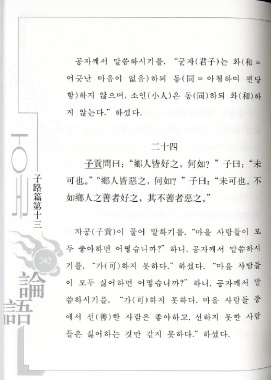 공자께서 말씀하시기를, “군자(君子)는 화(和=
어긋난 마음이 없음)하되 동(同=아첨하여 편당
함)하지 않으며, 소인(小人)은 동(同)하되 화(和)하
지 않는다.” 하셨다.
二十四
子貢問曰: “鄕人皆好之, 何如?” 子曰: “未
可也.” “鄕人皆惡之, 何如?” 子曰: “未可也. 不
如鄕人之善者好之, 其不善者惡之.”
자공(子貢)이 물어 말하기를, “마을 사람들이 모
두 좋아하면 어떻습니까?” 하니, 공자께서 말씀하시
기를, “가(可)하지 못하다.” 하셨다. “마을 사람들
이 모두 싫어하면 어떻습니까?” 하니, 공자께서 말
씀하시기를, “가(可)하지 못하다. 마을 사람들 중
에서 선(善)한 사람은 좋아하고, 선하지 못한 사람
들은 싫어하는 것만 같지 못하다.” 하셨다.
子路篇第十三
242
論語